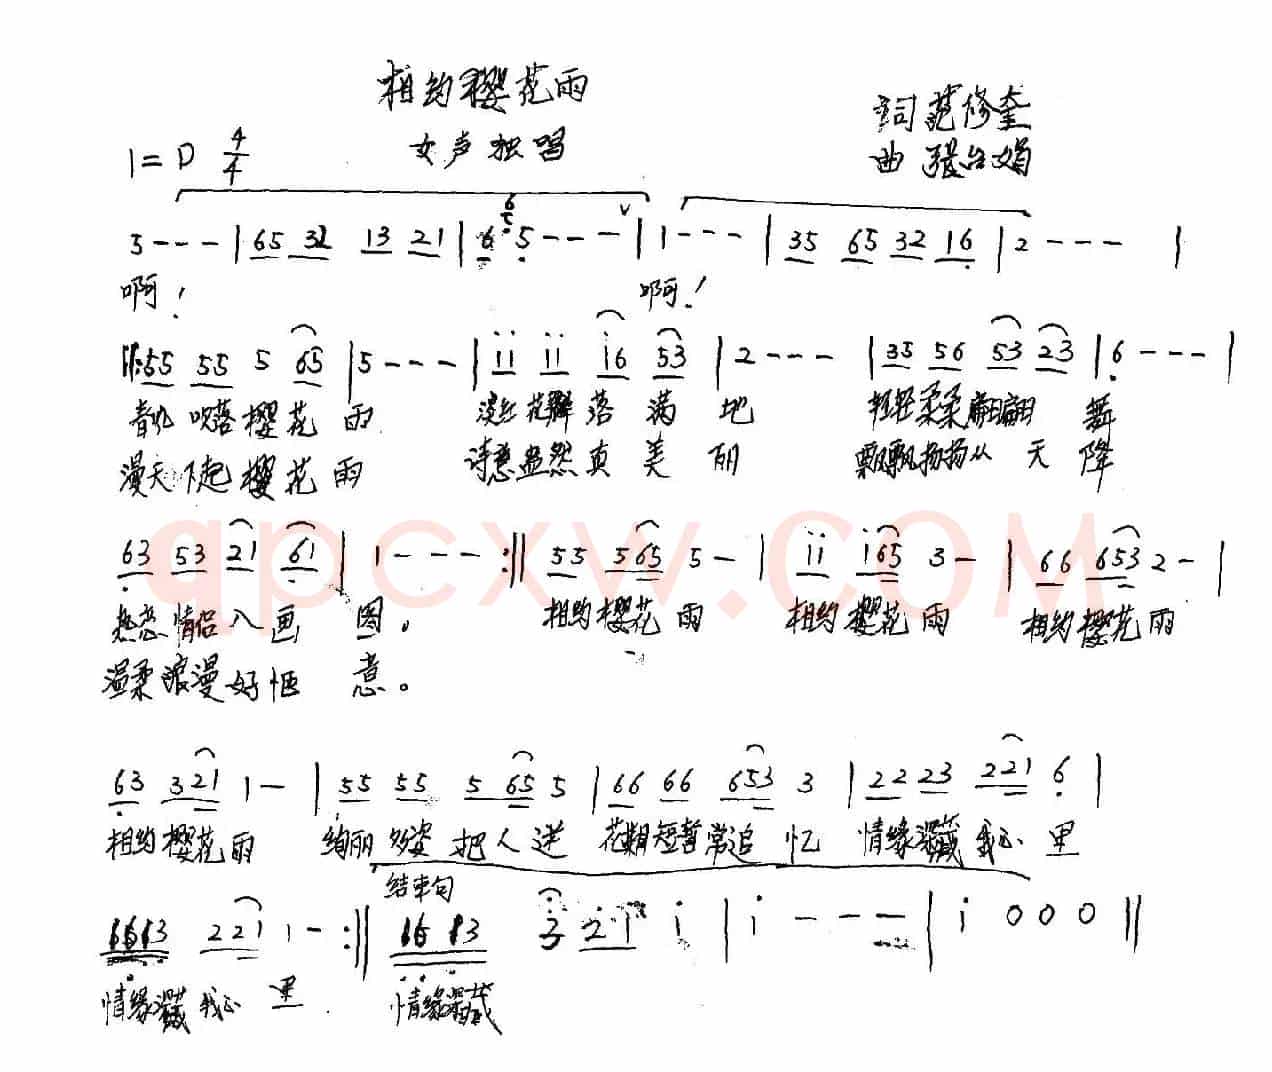 相约樱花雨
女声独唱
词 范修奎
曲 张
1=D 4/4
5--- | 65 32 13 21 | 6 5--- | 1--- | 35 65 32 16 | 2--- |
啊! 啊!
‖:55 55 5 65 | 5--- | 11 11 16 53 | 2--- | 35 56 53 23 | 6--- |
春儿 吹落 樱花 雨 淡红 花瓣 落 满 地 轻轻柔柔翩翩 舞
漫天下起樱花雨 诗意盎然真美丽 飘飘扬扬从天降
63 53 21 61 | 1--- :‖ 55 565 5- | 11 165 3- | 66 653 2- |
热恋情侣入画 图,
相约樱花雨 相约樱花雨 相约樱花雨
温柔浪漫好惬 意。
63 321 1- | 55 55 5 65 5 | 66 66 653 3 | 22 23 221 6 |
相约樱花雨 绚丽多姿把人迷 花期短暂常追忆 情缘深藏我心里
结束句
1613 221 1- :‖ 1613 3 21 1 | 1--- | 1 0 0 0 ‖
情缘深藏我心里 情缘深藏
apcxw.COM